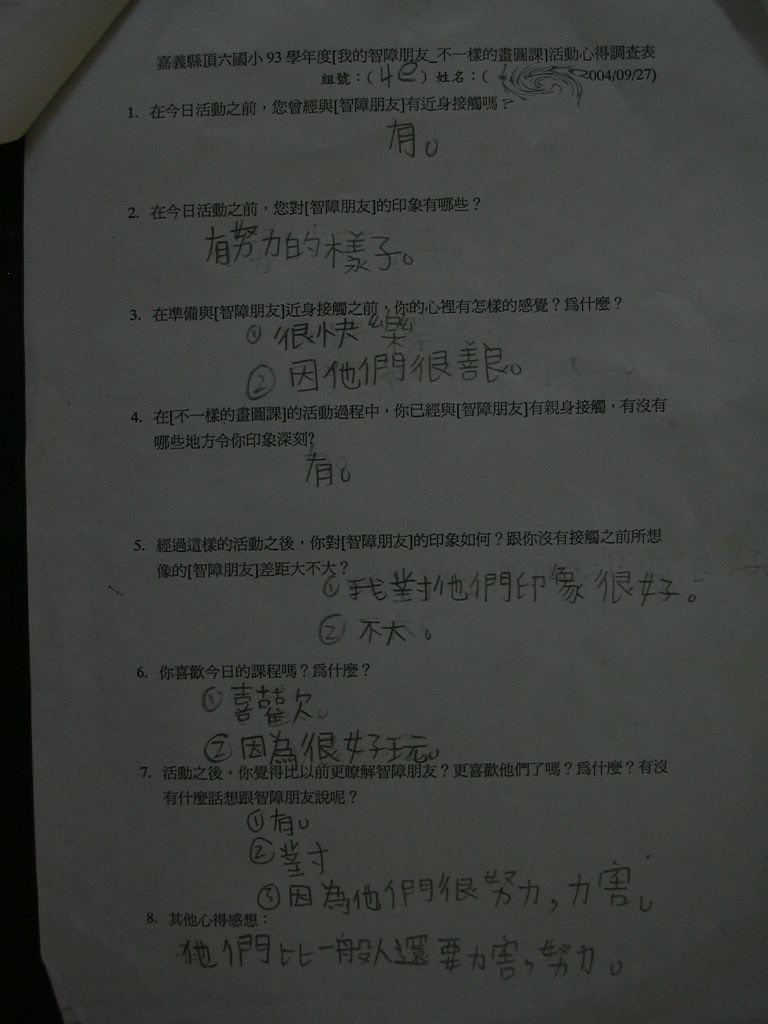 嘉義縣頂六國小93學年度[我的智障朋友_不一樣的畫圖課]活動心得調查表
組號：(4e) 姓名：( 2004/09/27)
1. 在今日活動之前，您曾經與[智障朋友]有近身接觸嗎？
有。
2. 在今日活動之前，您對[智障朋友]的印象有哪些？
有努力的樣子。
3. 在準備與[智障朋友]近身接觸之前，你的心裡有怎樣的感覺？為什麼？
① 很快樂
② 因他們很善良。
4. 在[不一樣的畫圖課]的活動過程中，你已經與[智障朋友]有親身接觸，有沒有
哪些地方令你印象深刻?
有。
5. 經過這樣的活動之後，你對[智障朋友]的印象如何？跟你沒有接觸之前所想
像的[智障朋友]差距大不大？
① 我對他們印象很好。
② 不大。
6. 你喜歡今日的課程嗎？為什麼？
① 喜歡。
② 因為很好玩。
7. 活動之後，你覺得比以前更瞭解智障朋友？更喜歡他們了嗎？為什麼？有沒
有什麼話想跟智障朋友說呢？
① 有。
② 對
③ 因為他們很努力，力害。
8. 其他心得感想：
他們比一般人還要力害，努力。